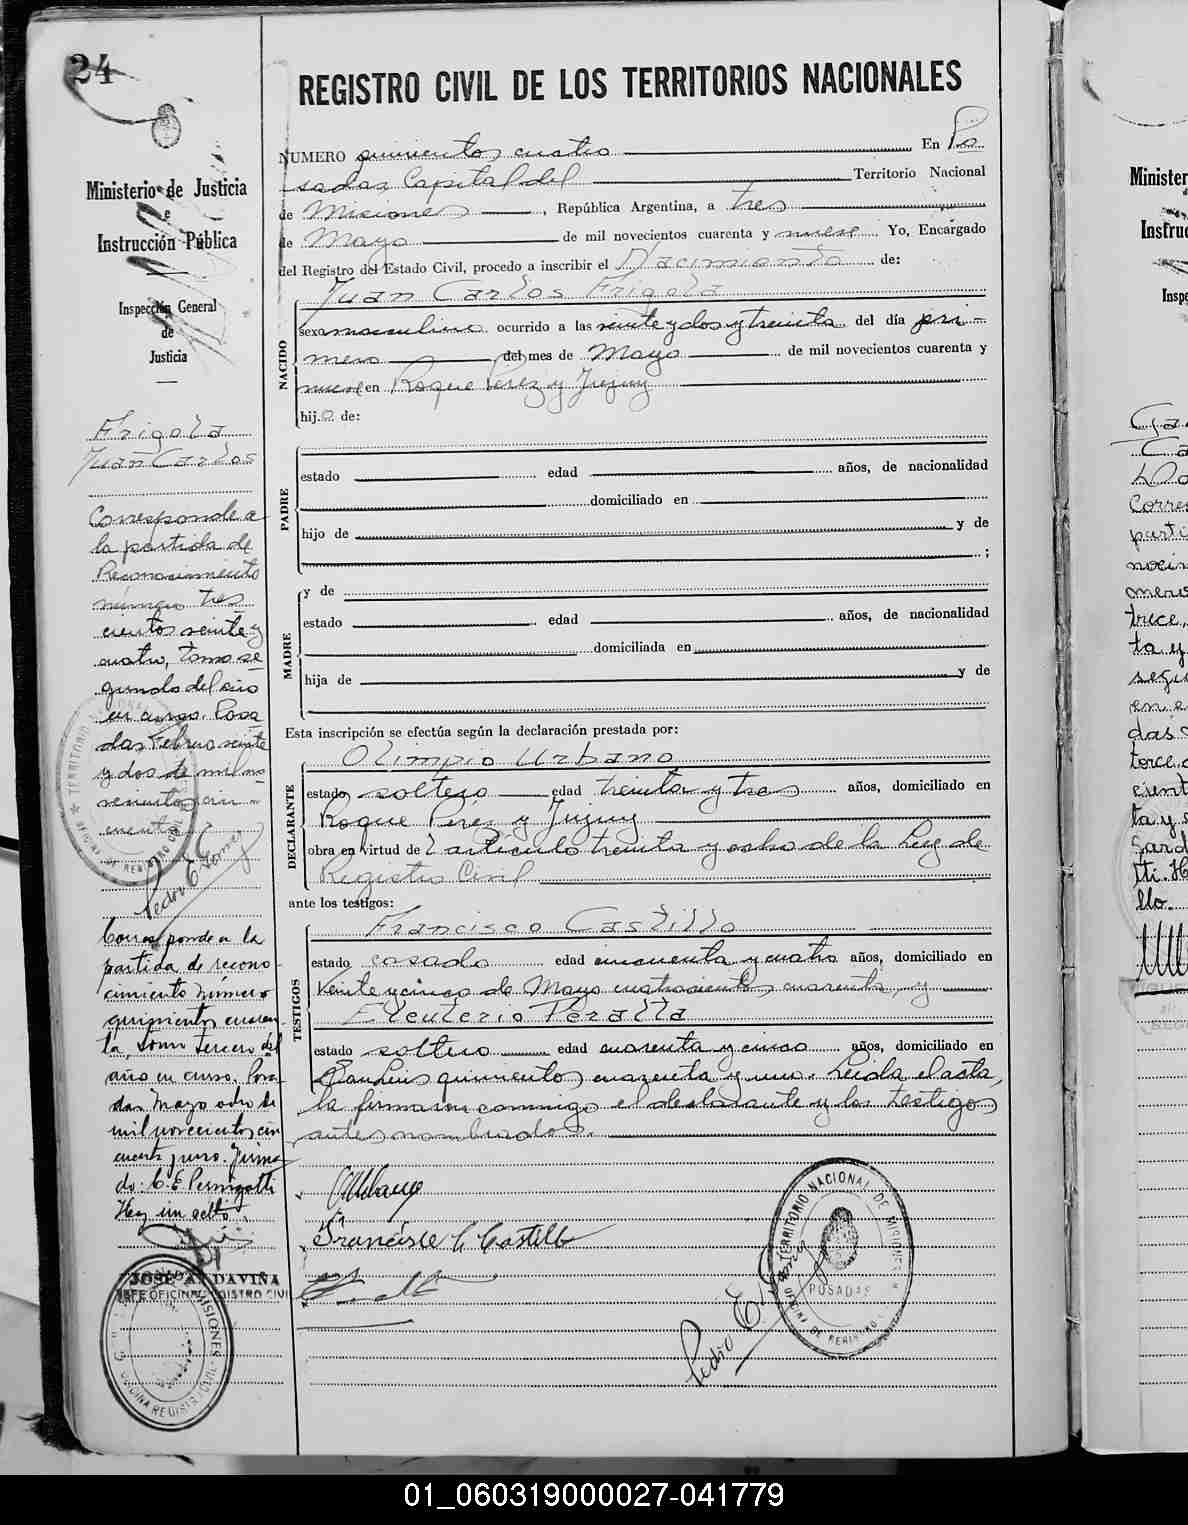 24
Ministerio de Justicia
e
Instrucción Pública
Inspección General
de
Justicia
Frigola
Juan Carlos
Corresponde a
la partida de
Reconocimiento
número tres
cientos veinte y
cuatro, tomo se
gundo del año
en curso. Posa
das Febrero veinte
y dos de mil no
vecientos cin-
cuenta
Pedro E.
Corresponde a la
partida de recono-
cimiento número
quinientos cuaren-
ta, tomo tercero del
año en curso. Posa
das, Mayo ocho de
mil novecientos cin
cuenta y uno. Firma
do: C. E. Pernigotti
Hay un sello
JOSE A. DAVIÑA
JEFE OFICINA REGISTRO CIVIL
REGISTRO CIVIL DE LOS TERRITORIOS NACIONALES
NUMERO quinientos cuatro En Po
sadas Capital del Territorio Nacional
de Misiones, República Argentina, a tres
de Mayo de mil novecientos cuarenta y nueve Yo, Encargado
del Registro del Estado Civil, procedo a inscribir el Nacimiento de:
NACIDO
Juan Carlos Frigola
sexo masculino ocurrido a las veinte y dos y treinta del día pri-
mero del mes de Mayo de mil novecientos cuarenta y
nueve en Roque Perez y Jujuy
hijo de:
PADRE
estado edad años, de nacionalidad
domiciliado en
hijo de y de
;
MADRE
y de
estado edad años, de nacionalidad
domiciliada en
hija de y de
Esta inscripción se efectúa según la declaración prestada por:
DECLARANTE
Olimpio Urbano
estado soltero edad treinta y tres años, domiciliado en
Roque Perez y Jujuy
obra en virtud del artículo treinta y ocho de la Ley de
Registro Civil
ante los testigos:
TESTIGOS
Francisco Castillo
estado casado edad cincuenta y cuatro años, domiciliado en
Veinte y cinco de Mayo cuatrocientos cuarenta, y
Eleuterio Peralta
estado soltero edad cuarenta y cinco años, domiciliado en
San Luis quinientos cuarenta y uno. Leida el acta,
la firmaron conmigo el declarante y los testigos
antes nombrados.
O Urbano
Francisco C Castillo
Pedro E.
TERRITORIO NACIONAL DE MISIONES
POSADAS
OFICINA DE REGISTRO
01_060319000027-041779